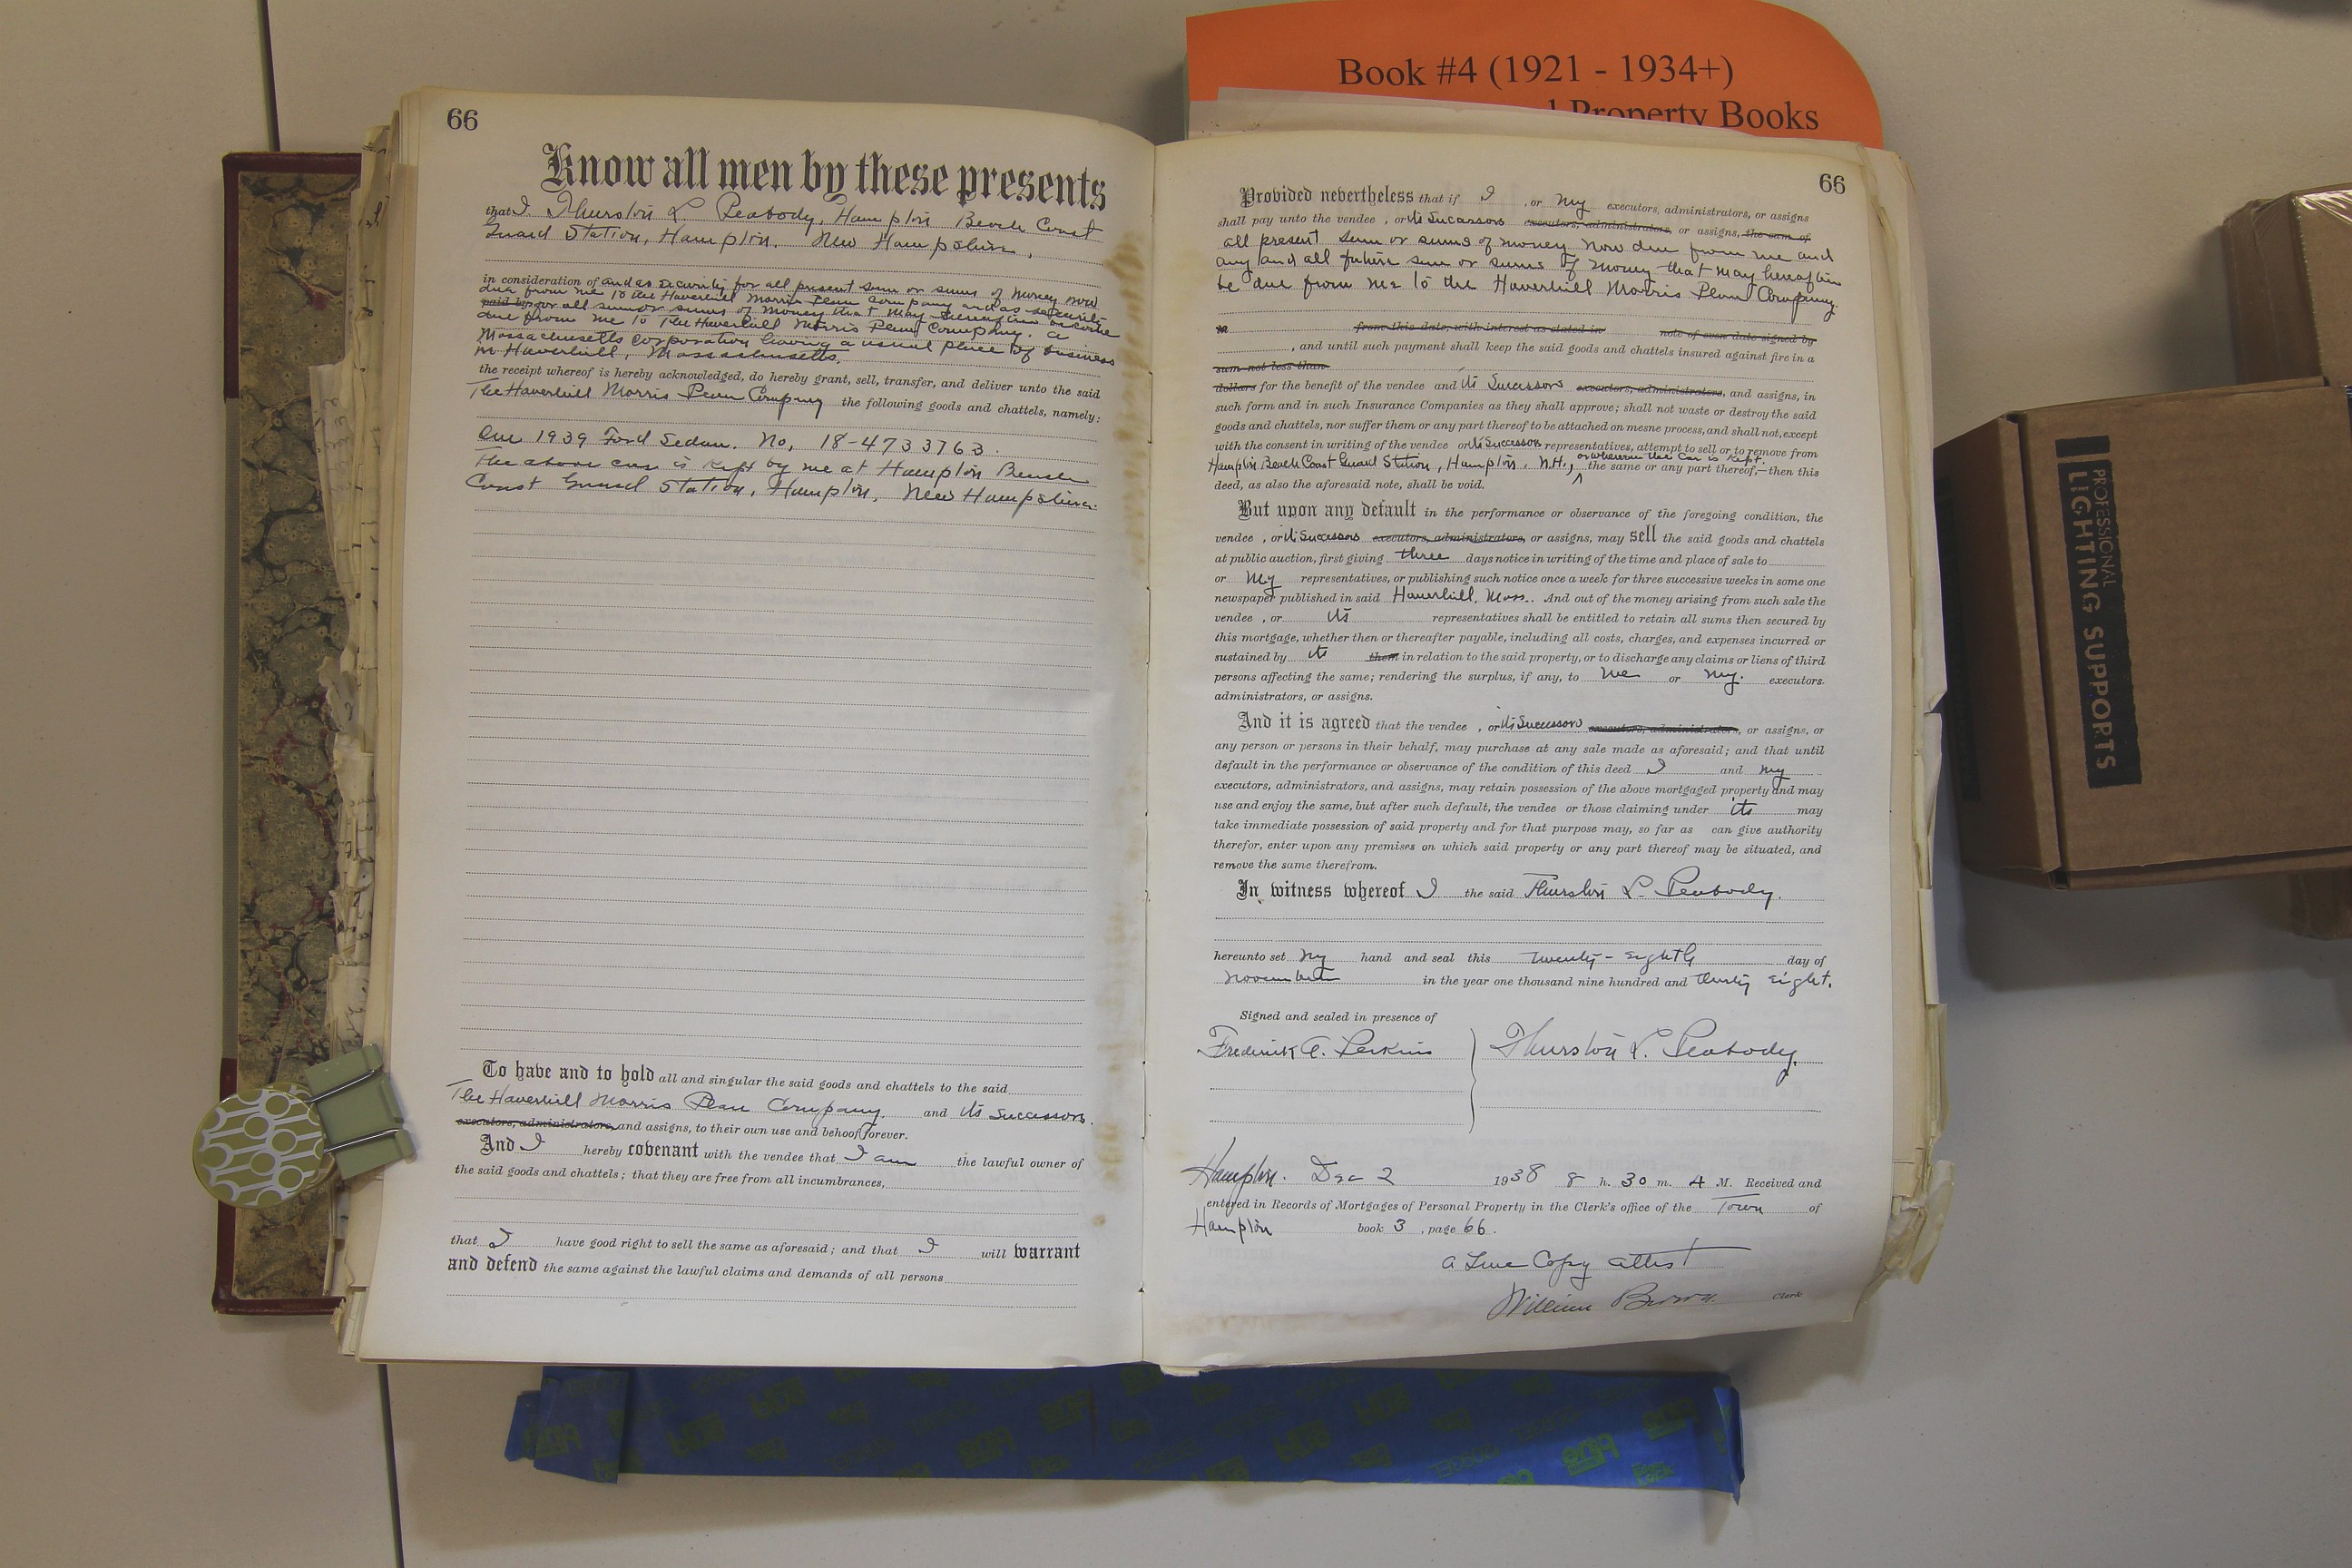 Book #4 (1921 - 1934+)
Property Books
66
Know all men by these presents
that I. Thurston L. Peabody, Hampton Beach Coast
Guard Station, Hampton. New Hampshire.
in consideration of and as security for all present sum or sums of money now
due from me to the Haverhill Morris Plan Company and as security
paid by for all sum or sums of money that may hereafter become
due from me to The Haverhill Morris Plan Company. a
Massachusetts corporation having a usual place of business
in Haverhill, Massachusetts.
the receipt whereof is hereby acknowledged, do hereby grant, sell, transfer, and deliver unto the said
The Haverhill Morris Plan Company the following goods and chattels, namely:
One 1939 Ford Sedan. No, 18-4733763.
The above car is kept by me at Hampton Beach
Coast Guard Station, Hampton, New Hampshire.
To have and to hold all and singular the said goods and chattels to the said
The Haverhill Morris Plan Company. and its successors.
executors, administrators, and assigns, to their own use and behoof forever.
And I hereby covenant with the vendee that I am the lawful owner of
the said goods and chattels; that they are free from all incumbrances,
that I have good right to sell the same as aforesaid; and that I will warrant
and defend the same against the lawful claims and demands of all persons
66
Provided nevertheless that if I , or my executors, administrators, or assigns
shall pay unto the vendee , or its Successors executors, administrators, or assigns, the sum of
all present sum or sums of money now due from me and
any and all future sum or sums of money that may hereafter
be due from me to the Haverhill Morris Plan Company.
in from this date, with interest as stated in note of even date signed by
, and until such payment shall keep the said goods and chattels insured against fire in a
sum not less than
dollars for the benefit of the vendee and its Successors executors, administrators, and assigns, in
such form and in such Insurance Companies as they shall approve; shall not waste or destroy the said
goods and chattels, nor suffer them or any part thereof to be attached on mesne process, and shall not, except
with the consent in writing of the vendee or its Successors representatives, attempt to sell or to remove from
or wherein the car is kept,
Hampton Beach Coast Guard Station, Hampton. N.H., the same or any part thereof,—then this
deed, as also the aforesaid note, shall be void.
But upon any default in the performance or observance of the foregoing condition, the
vendee , or its Successors executors, administrators, or assigns, may sell the said goods and chattels
at public auction, first giving three days notice in writing of the time and place of sale to
or my representatives, or publishing such notice once a week for three successive weeks in some one
newspaper published in said Haverhill, Mass. And out of the money arising from such sale the
vendee , or its representatives shall be entitled to retain all sums then secured by
this mortgage, whether then or thereafter payable, including all costs, charges, and expenses incurred or
sustained by its them in relation to the said property, or to discharge any claims or liens of third
persons affecting the same; rendering the surplus, if any, to me or my. executors.
administrators, or assigns.
And it is agreed that the vendee , or its Successors executors, administrators, or assigns, or
any person or persons in their behalf, may purchase at any sale made as aforesaid; and that until
default in the performance or observance of the condition of this deed I and my
executors, administrators, and assigns, may retain possession of the above mortgaged property and may
use and enjoy the same, but after such default, the vendee or those claiming under its may
take immediate possession of said property and for that purpose may, so far as can give authority
therefor, enter upon any premises on which said property or any part thereof may be situated, and
remove the same therefrom.
In witness whereof I the said Thurston L. Peabody.
hereunto set my hand and seal this twenty-eighth day of
November in the year one thousand nine hundred and thirty eight.
Signed and sealed in presence of
Frederick A. Perkins Thurston L. Peabody.
Hampton. Dec 2 1938 8 h. 30 m. A M. Received and
entered in Records of Mortgages of Personal Property in the Clerk's office of the Town of
Hampton book 3 , page 66.
a True Copy attest
William Brown. Clerk
PROFESSIONAL
LIGHTING SUPPORTS